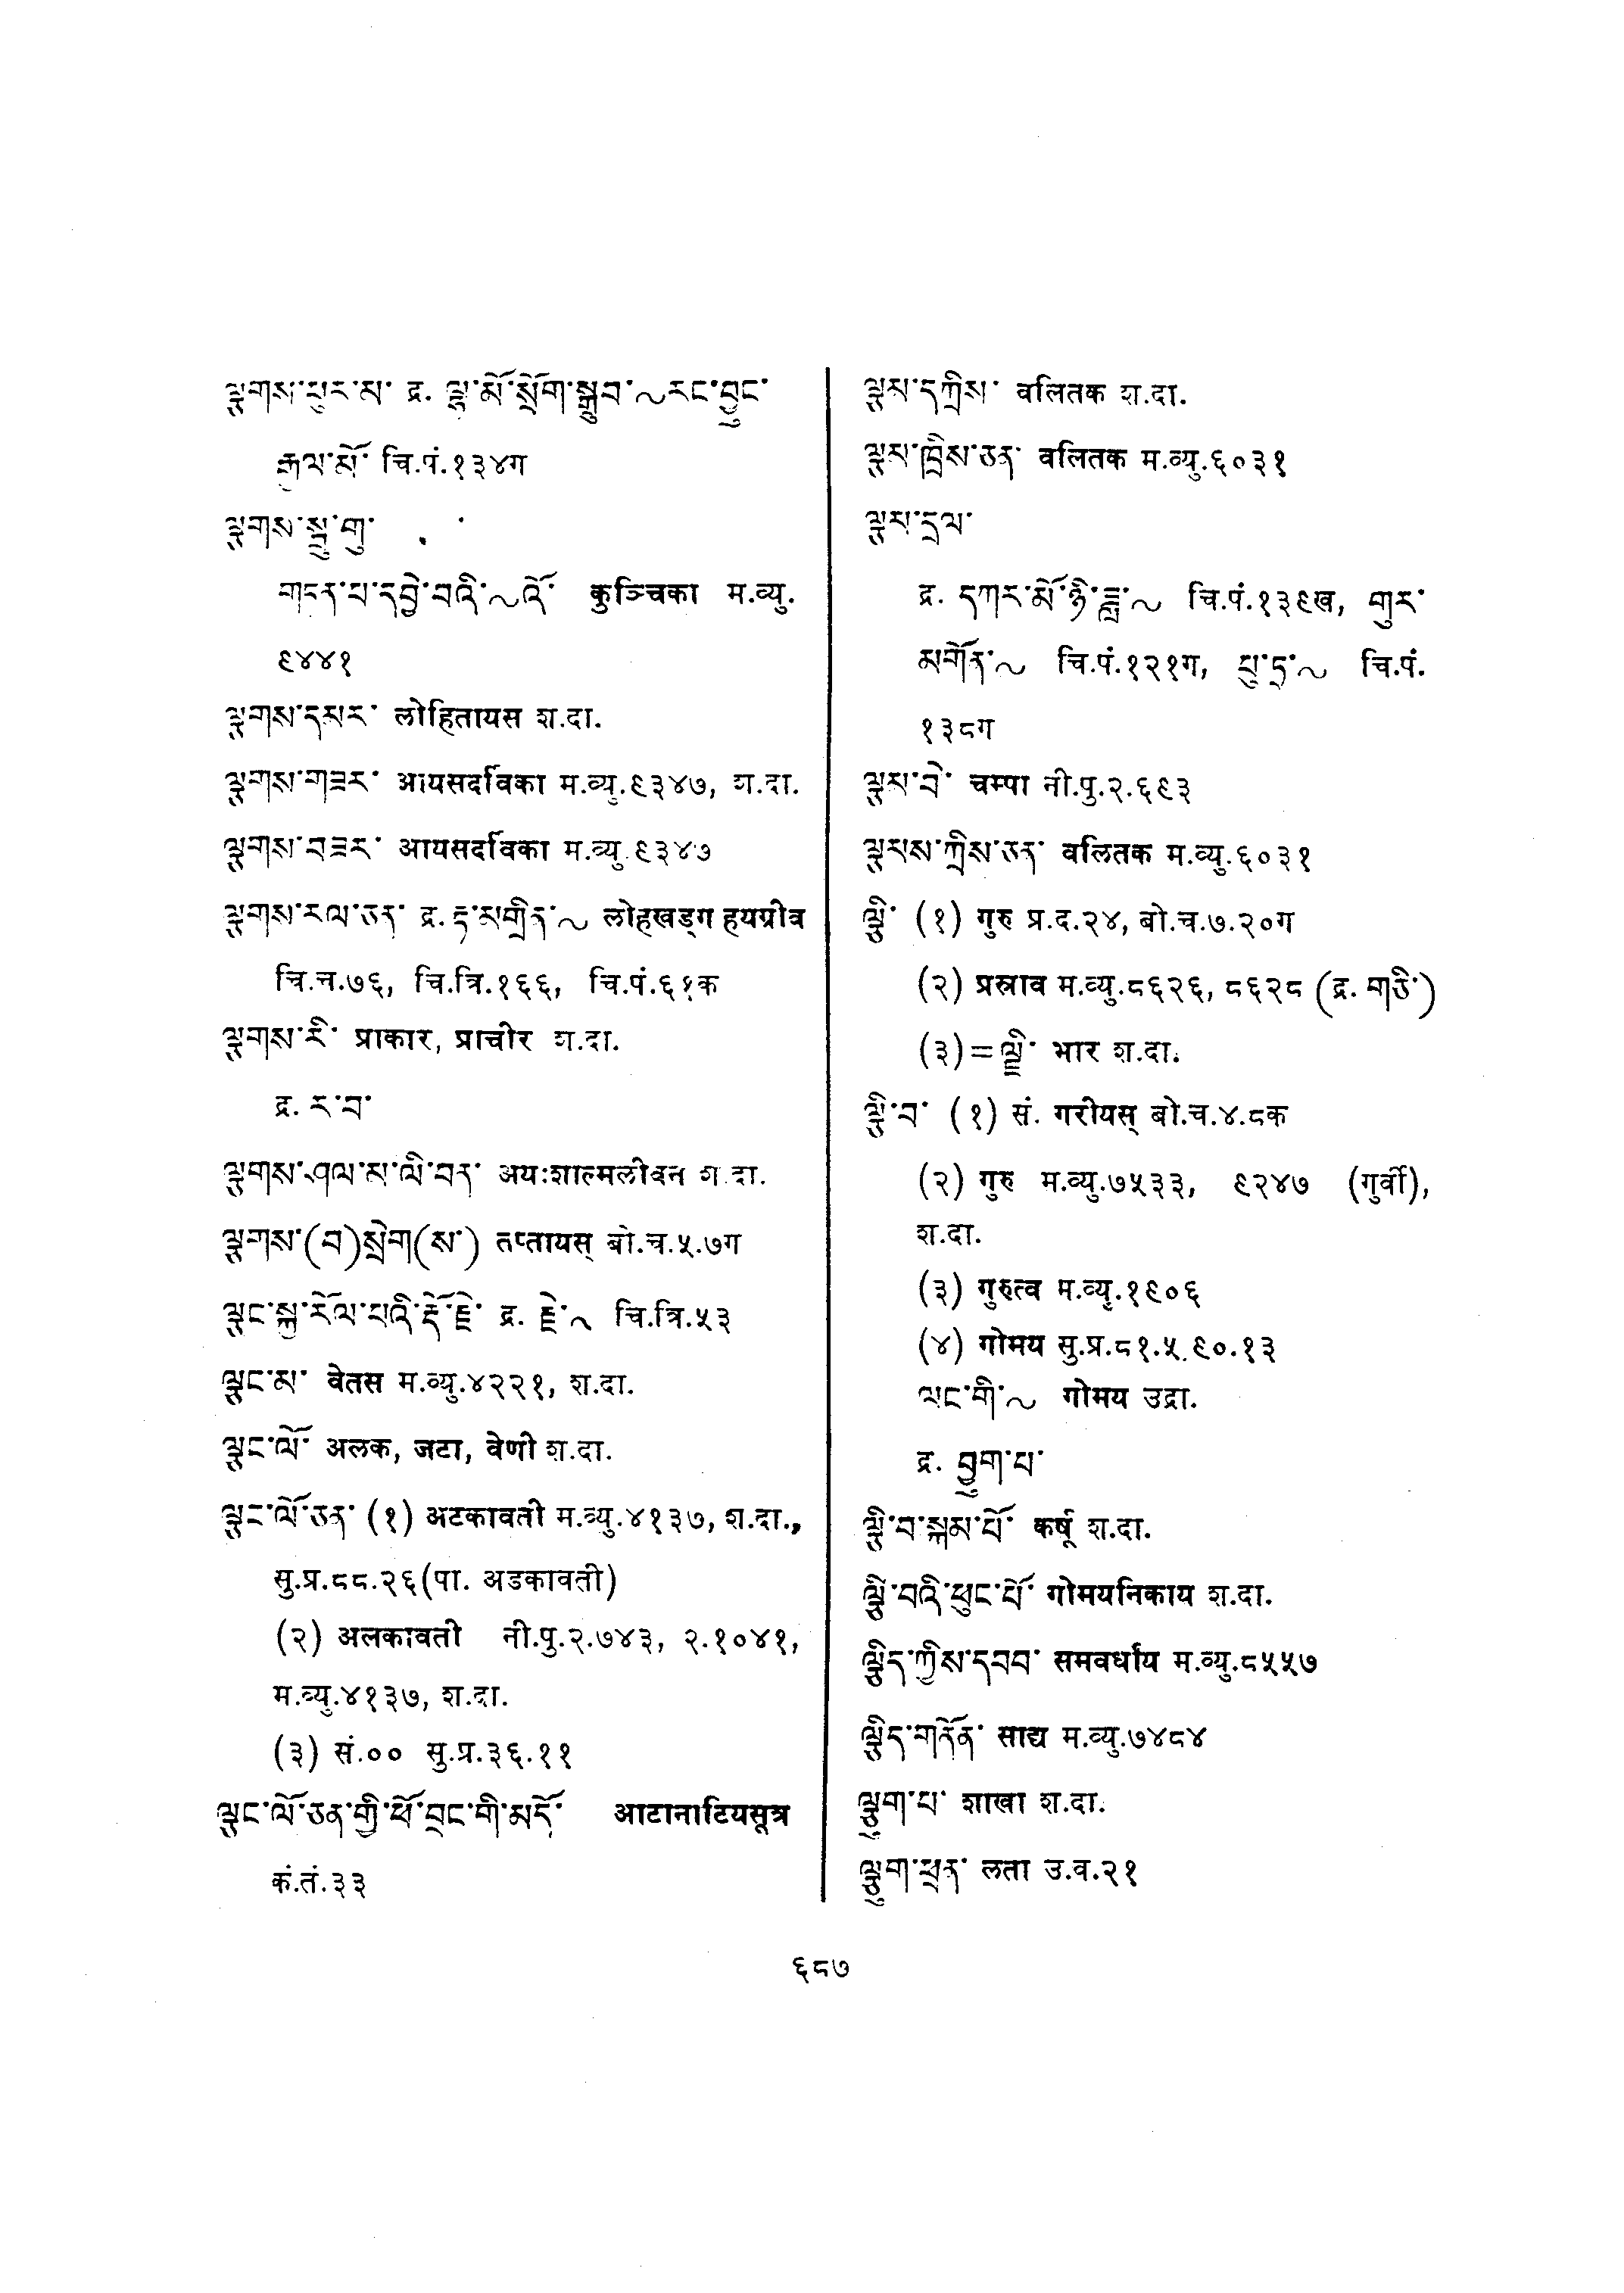 ལྕགས་ཕུར་མ་ द्र. ལྷ་མོ་སྲོག་སྒྲུབ་~རང་བྱུང་
རྒྱལ་མོ་ चि.पं.१३४ग
ལྕགས་སྦྲུ་གུ་
གདན་པ་དབྱེ་བའི་~འོ་ कुञ्चिका म.व्यु.
९४४१
ལྕགས་དམར་ लोहितायस श.दा.
ལྕགས་གཟར་ आयसर्दावका म.व्यु.९३४७, श.दा.
ལྕགས་བཟར་ आयसर्दावका म.व्यु.९३४७
ལྕགས་རལ་ཅན་ द्र. རྟ་མགྲིན་~ लोहखड्ग हयग्रीव
चि.च.७६, चि.त्रि.१६६, चि.पं.६१क
ལྕགས་རི་ प्राकार, प्राचीर श.दा.
द्र. ར་བ་
ལྕགས་ཤལ་མ་ལི་བན་ अयःशाल्मलीवन श.दा.
ལྕགས་(བ)སྲེག(ས་) तप्तायस् बो.च.५.७ग
ལྕང་སྐྱ་རོལ་པའི་རྡོ་རྗེ་ द्र. རྗེ་~ चि.त्रि.५३
ལྕང་མ་ वेतस म.व्यु.४२२१, श.दा.
ལྕང་ལོ་ अलक, जटा, वेणी श.दा.
ལྕང་ལོ་ཅན་ (१) अटकावती म.व्यु.४१३७, श.दा.,
सु.प्र.८८.२६(पा. अडकावती)
(२) अलकावती नी.पु.२.७४३, २.१०४१,
म.व्यु.४१३७, श.दा.
(३) सं.०० सु.प्र.३६.११
ལྕང་ལོ་ཅན་གྱི་ཕོ་བྲང་གི་མདོ་ आटानाटियसूत्र
कं.तं.३३
ལྕམ་དཀྲིས་ वलितक श.दा.
ལྕམ་ཁྲིས་ཅན་ वलितक म.व्यु.६०३१
ལྕམ་དྲལ་
द्र. དཀར་མོ་ཉི་ཟླ་~ चि.पं.१३९ख, གུར་
མགོན་~ चि.पं.१२१ग, པུ་ཏྲ་~ चि.पं.
१३८ग
ལྕམ་བྲེ་ चम्पा नी.पु.२.६९३
ལྕམས་ཀྲིས་ཅན་ वलितक म.व्यु.६०३१
ལྕི་ (१) गुरु प्र.द.२४, बो.च.७.२०ग
(२) प्रस्राव म.व्यु.८६२६, ८६२८ (द्र. གཅི་)
(३)=ལྗི་ भार श.दा.
ལྕི་བ་ (१) सं. गरीयस् बो.च.४.८क
(२) गुरु म.व्यु.७५३३, ९२४७ (गुर्वी),
श.दा.
(३) गुरुत्व म.व्यु.१९०६
(४) गोमय सु.प्र.८१.५,९०.१३
ལང་གི་~ गोमय उद्रा.
द्र. བྱུག་པ་
ལྕི་བ་སྐམ་པོ་ कर्षू श.दा.
ལྕི་བའི་ཕུང་པོ་ गोमयनिकाय श.दा.
ལྕིད་ཀྱིས་དབབ་ समवर्धाय म.व्यु.८५५७
ལྕིད་གནོན་ साद्य म.व्यु.७४८४
ལྕུག་པ་ शाखा श.दा.
ལྕུག་ཕྲན་ लता उ.व.२१
६८७